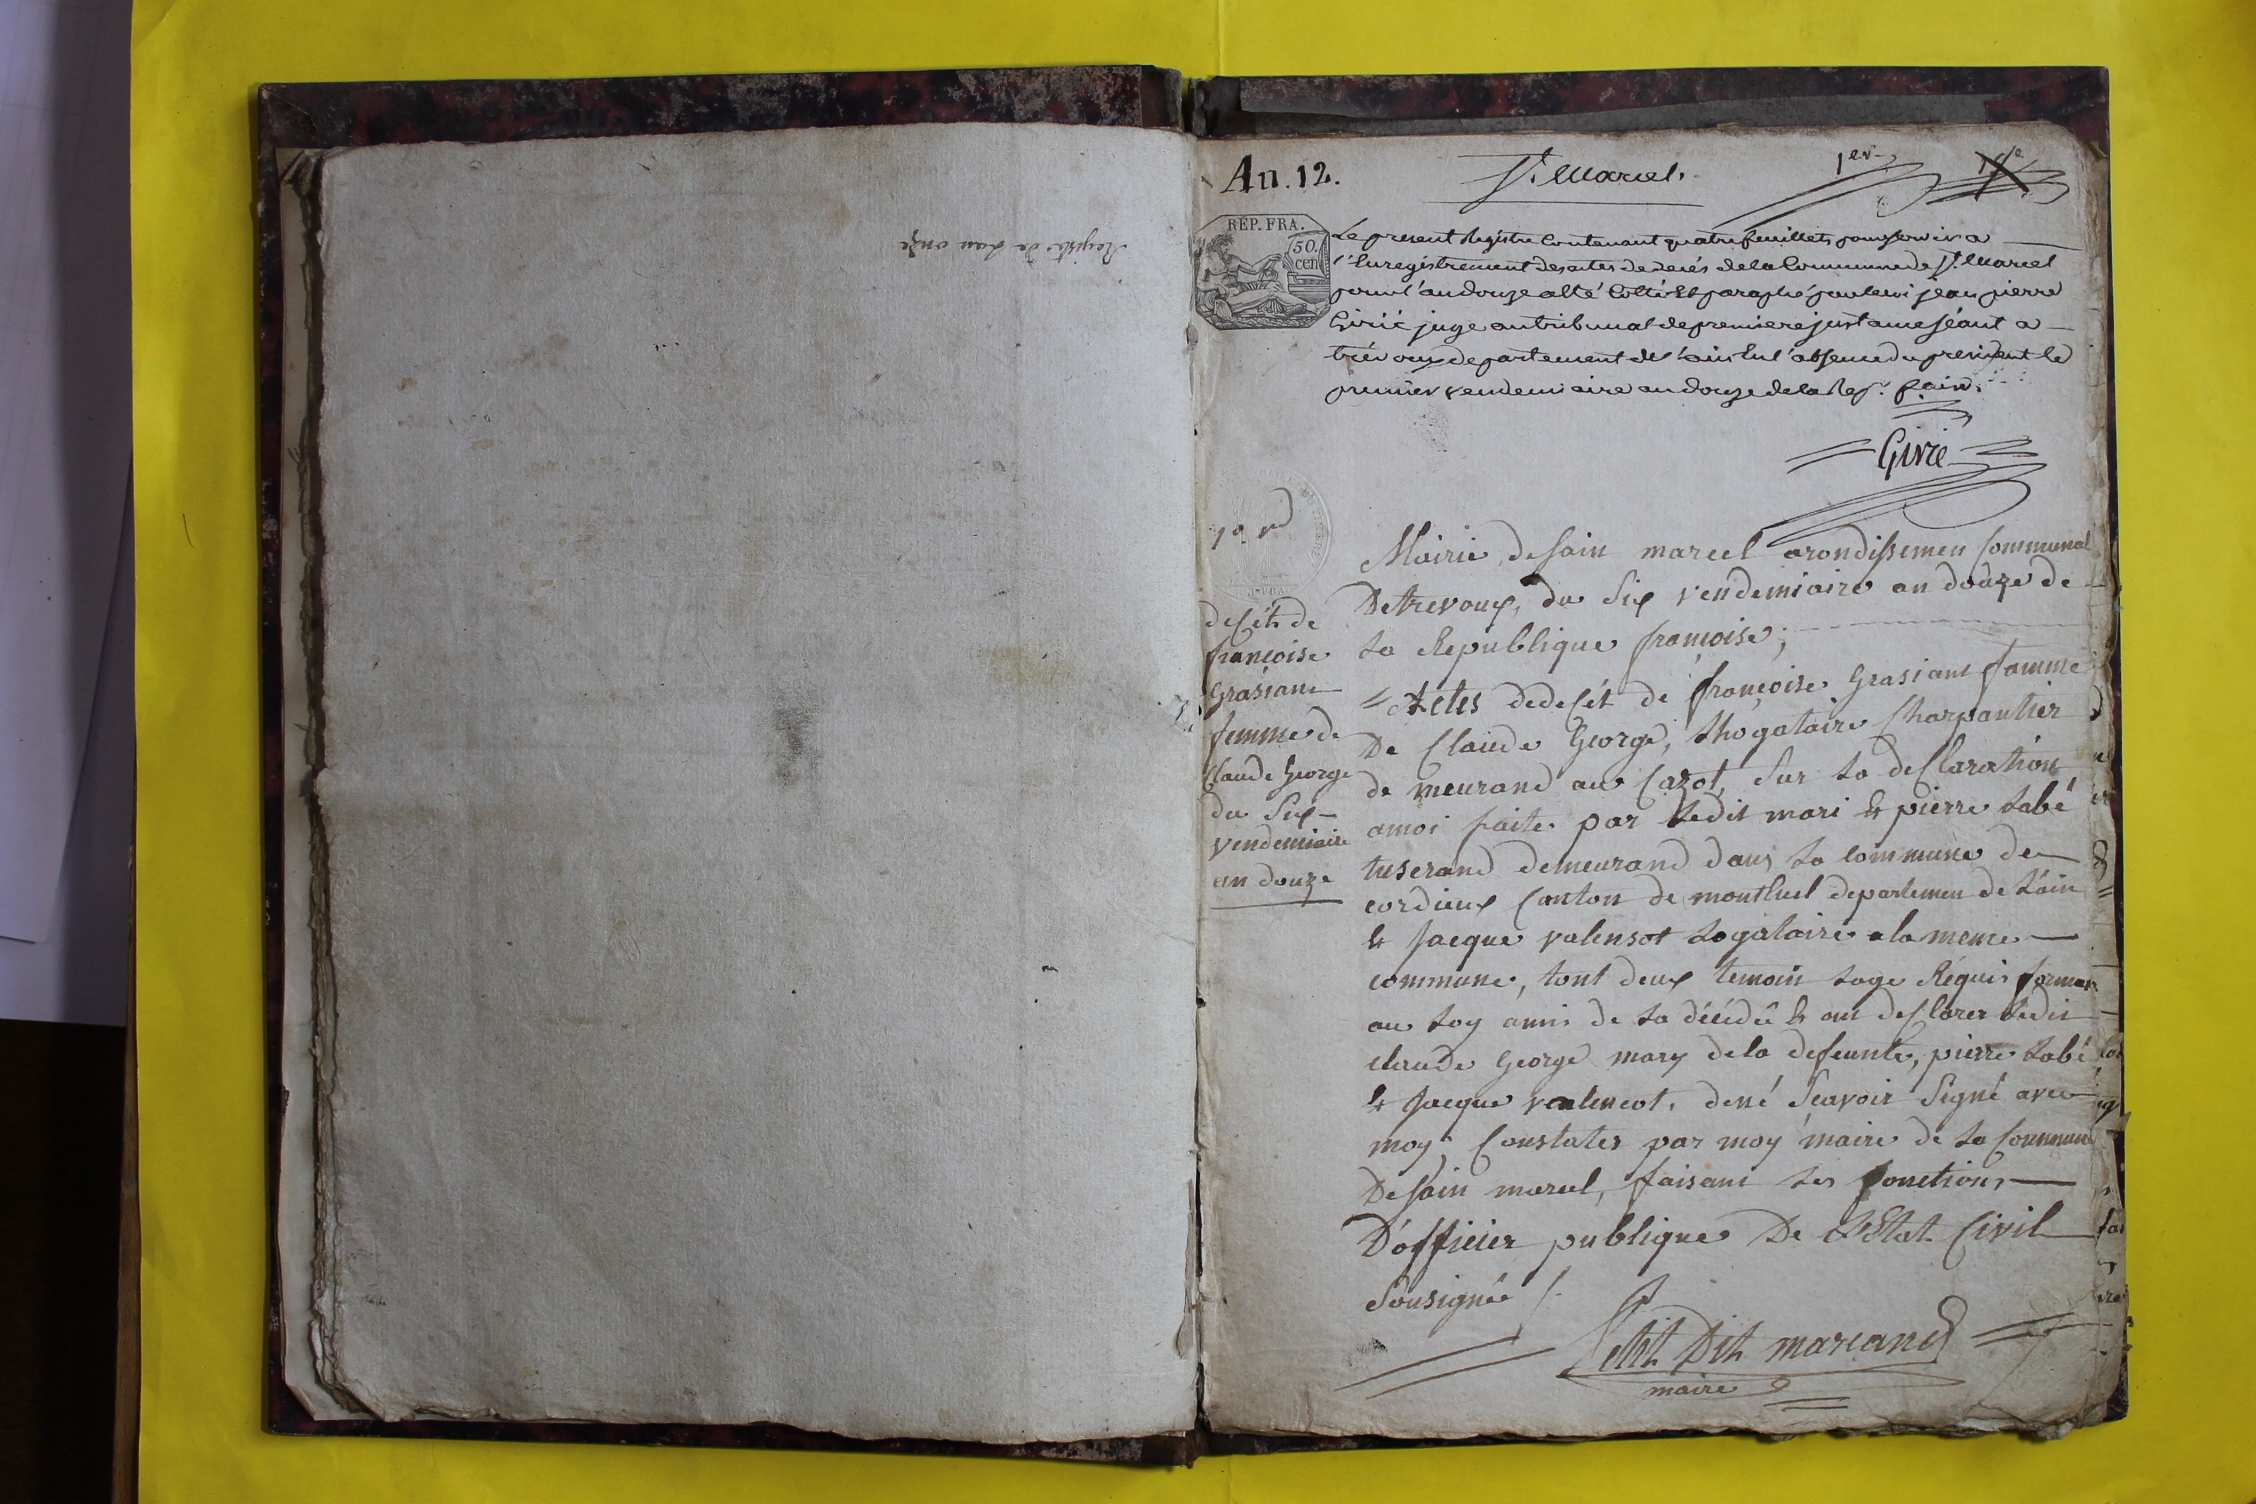 Registre de Lan onze
An. 12.
St. Marcel.
1er
REP. FRA.
50.
cen
Le present Registre Contenant quatre feuillets pour servir a
l'Enregistrement des actes de decés de la Commune de St. Marcel
pour l'an douze a été Cotté Et paraphé par moi jean pierre
Givié juge au tribunal de premiere instance séant a
trévoux departement de l'ain En l'absence du president le
premier vendemiaire an douze de la Rep. f.
Givié
1er
deCét de
françoise
Grasiant
femme de
Claude George
du Six
vendemiaire
an douze
Mairie de Sain marcel arondissemen Communal
De trevoux, du Six vendemiaire an douze de
La Republique françoise;
Actes de deCét de françoise Grasiant famme
De Claude George, Lhogataire Charpantier
de meurand au Cazot, Sur La deClaration
amoi faite par Ledit mari Et pierre Labé
tuserand demeurand dans La commune de
cordieux Canton de montluel departemen de L'ain
Et Jacque valensot Logataire a la meme
commune, tout deux temoin Lage Réquis
au Loy amis de La décédû Et ont deClarer Ledit
claude George mary de la defeunte, pierre Labé
Et Jacque valencot, dené Sçavoir Signé avec
moy, Constater par moy maire de La Commune
De Sain marcel, faisant Les fonctions
D'officier publique De L'Etat Civil
Sousigné
Petit Dit marcand
maire